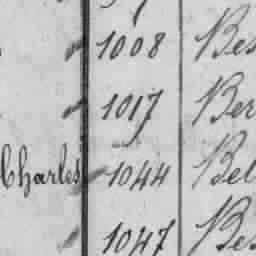 1008 Bes
1017 Ber
Charles 1044 Bel
1047 Bes